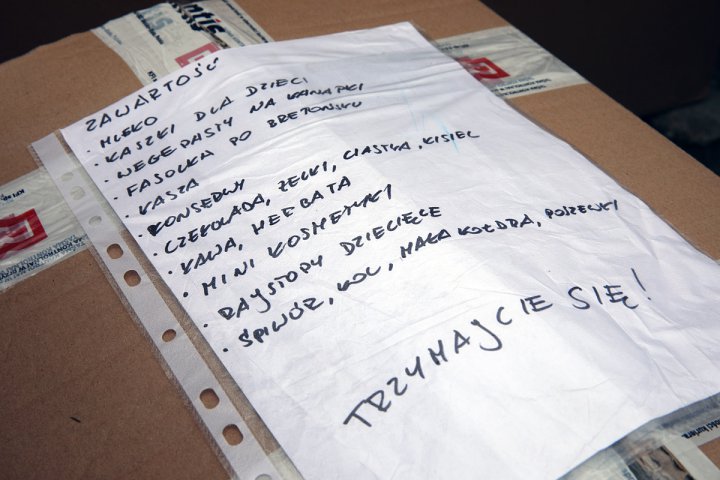 ZAWARTOŚĆ
• MLEKO
• KASZKI DLA DZIECI
• WEGE PASTY NA KANAPKI
• FASOLKA PO BRETOŃSKU
• KASZA
• KONSERWY
• CZEKOLADA, ŻELKI, CIASTKA, KISIEL
• KAWA, HERBATA
• MINI KOSMETYKI
• RAJSTOPY DZIECIĘCE
• ŚPIWÓR, KOC, MAŁA KOŁDRA, POSZEWKI
TRZYMAJCIE SIĘ!